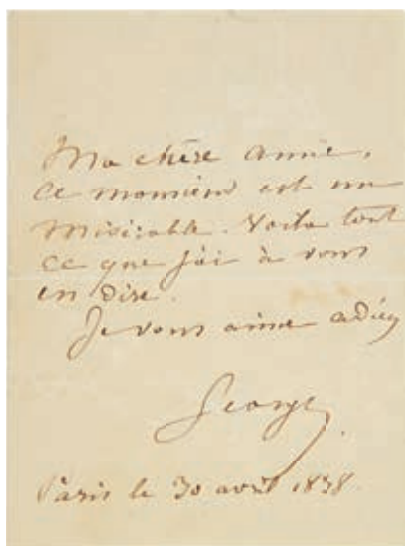 Ma chère amie,
ce monsieur est un
misérable. Voila tout
ce que j'ai à vous
en dire.
Je vous aime adieu
George
Paris le 30 avril 1838.